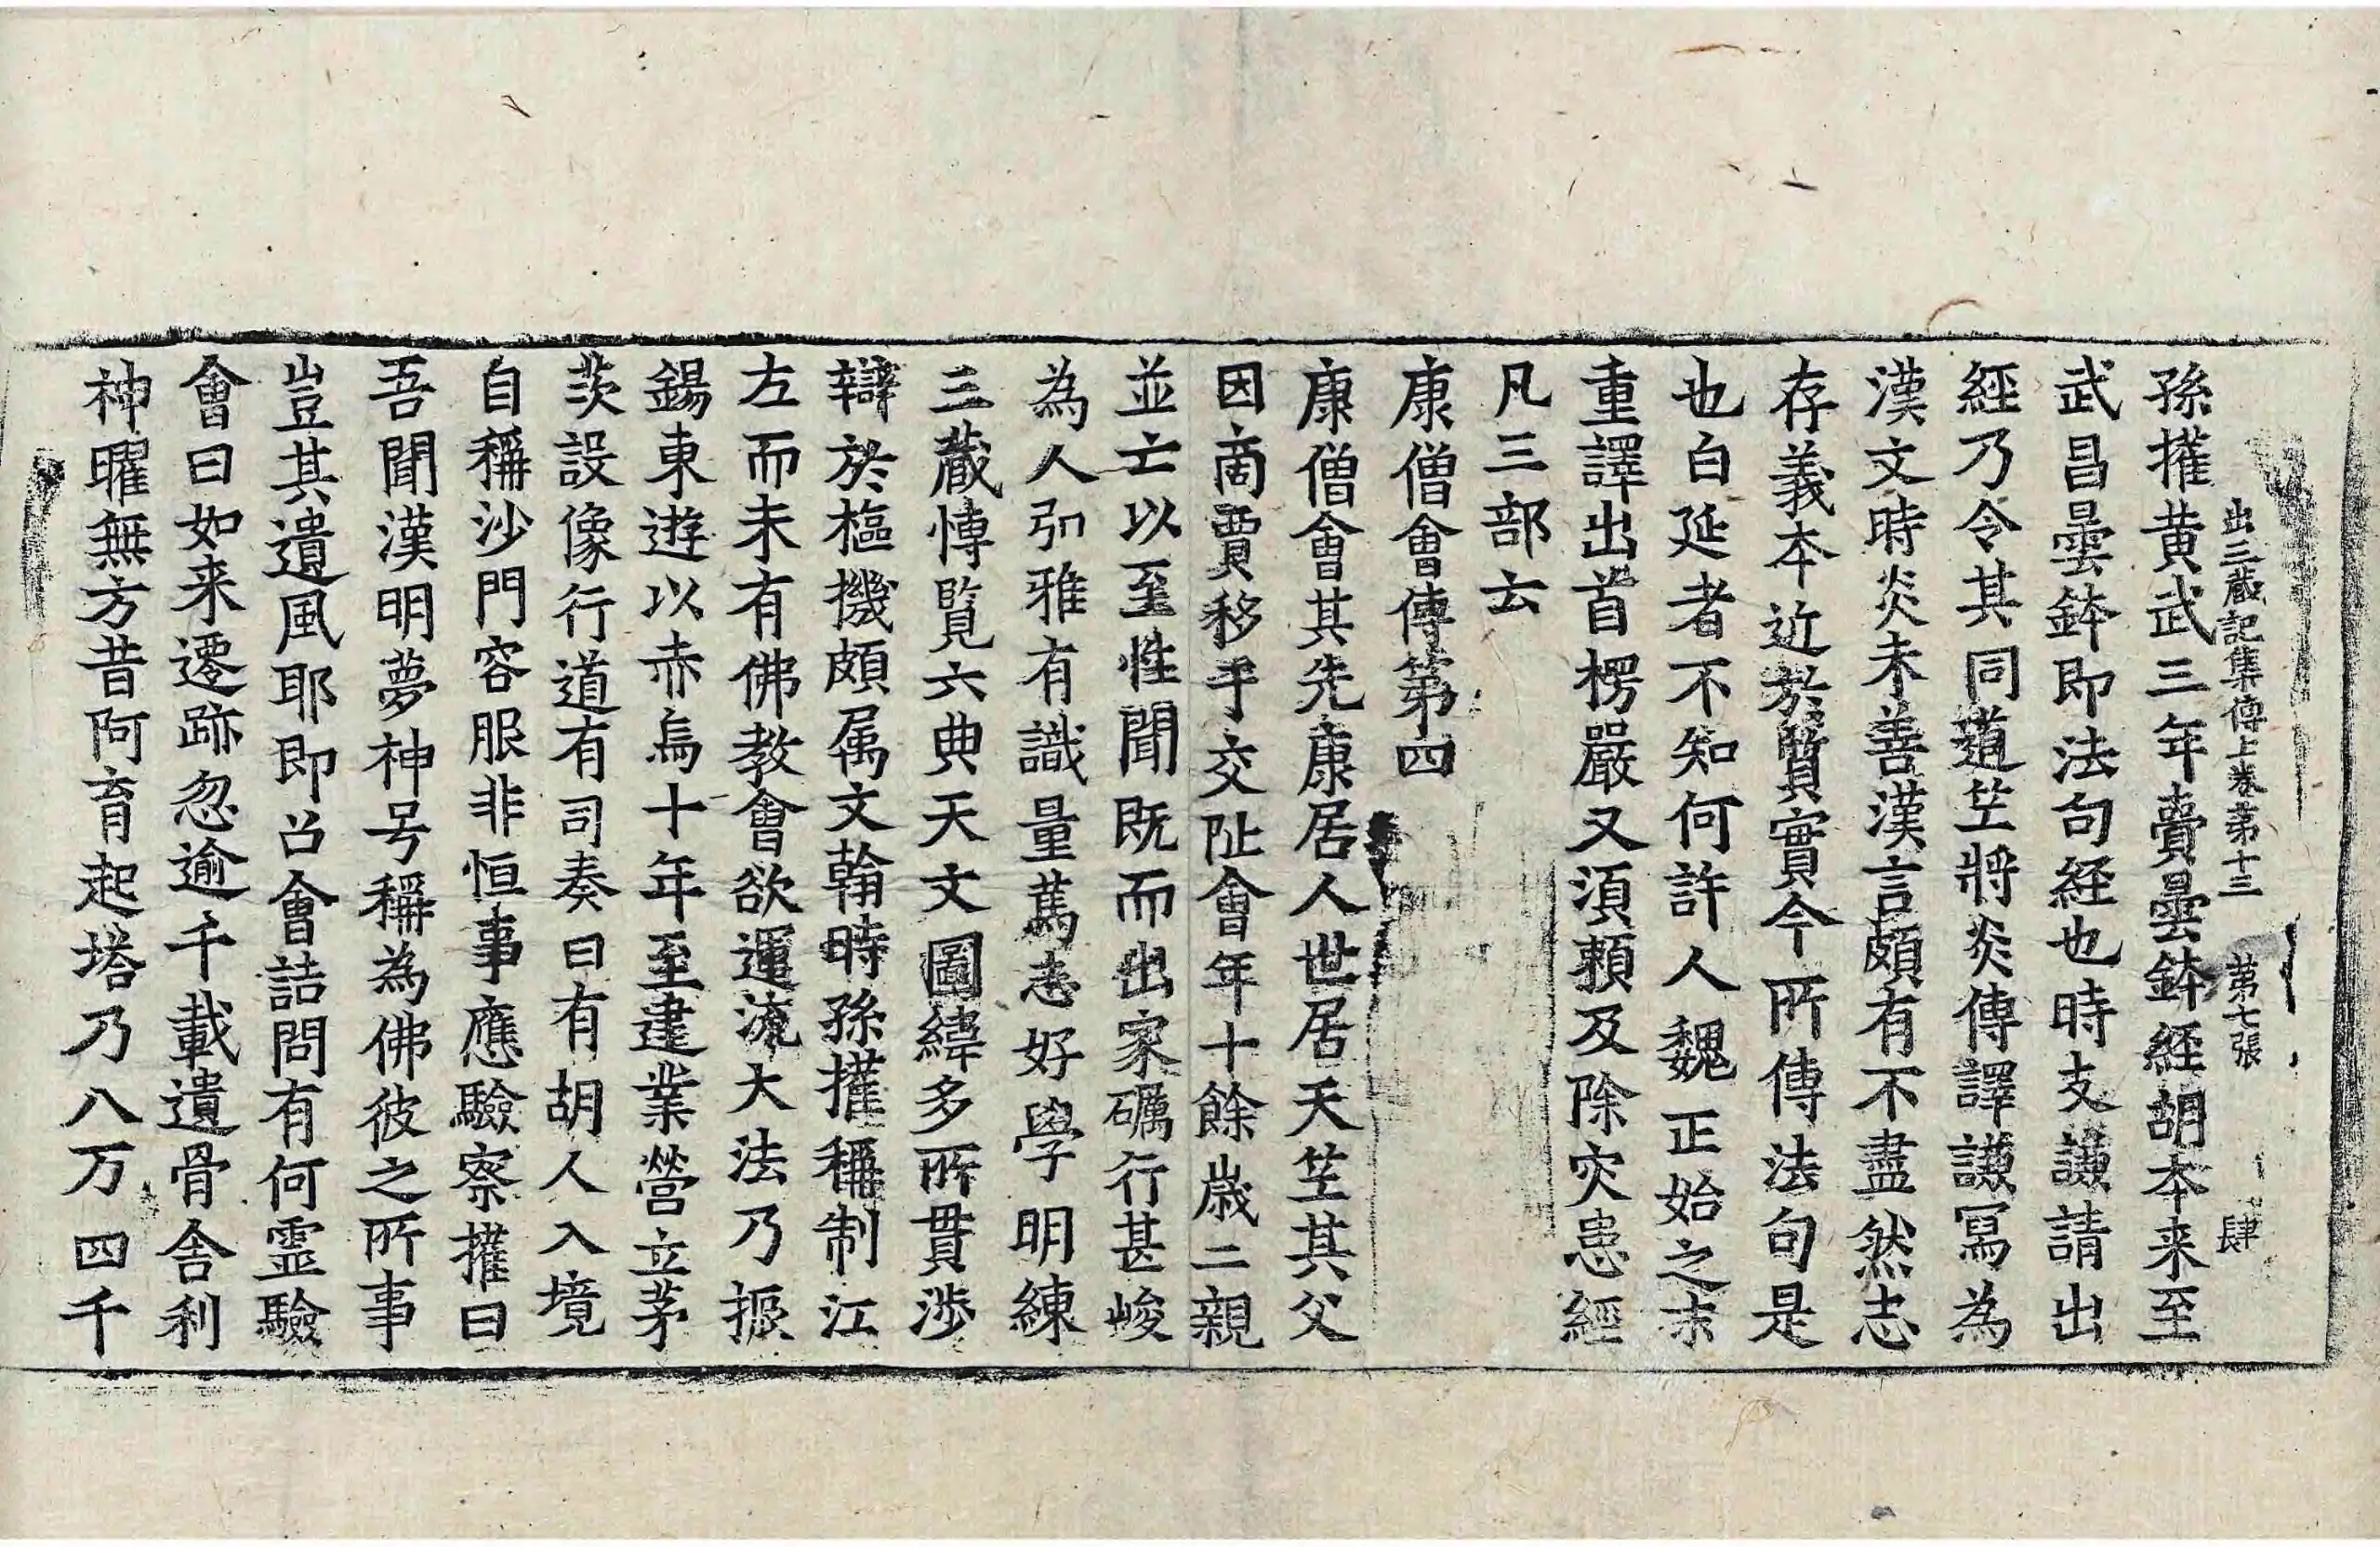 出三蔵記集傳上卷第十三 第七張 肆
孫權黄武三年賷曇鉢経胡本来至
武昌曇鉢即法句経也時支謙請出
経乃令其同道竺將炎傳譯謙冩為
漢文時炎未善漢言頗有不盡然志
存義本近於質實今所傳法句是
也白延者不知何許人魏正始之末
重譯出首楞嚴又須頼及除灾患經
凡三部云
康僧會傳第四
康僧會其先康居人世居天竺其父
因商賈移于交阯會年十餘歲二親
並亡以至性聞既而出家礪行甚峻
為人弘雅有識量篤志好學明練
三蔵愽覧六典天文圖緯多所貫渉
辯於樞機頗属文翰時孫權稱制江
左而未有佛教會欲運流大法乃振
錫東遊以赤烏十年至建業營立茅
茨設像行道有司奏曰有胡人入境
自稱沙門容服非恒事應驗察權曰
吾聞漢明夢神号稱為佛彼之所事
豈其遺風耶即召會詰問有何霊驗
會曰如来遷跡忽逾千載遺骨舎利
神曜無方昔阿育起塔乃八万四千